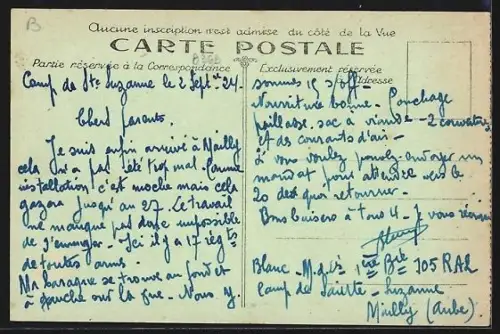 B
Aucune inscription n'est admise du côté de la Vue
CARTE POSTALE
Partie réservée à la Correspondance
Exclusivement réservée
à l'Adresse
Camp de Ste Suzanne le 2 Sept 24
Chers parents
Je suis enfin arrivé à Mailly
cela n'a pas été trop mal. Comme
installation c'est moche mais cela
gazera jusqu'au 27. Le travail
ne manque pas donc impossible
de s'ennuyer - Ici il y a 17 régts
de toutes armes.
Ma baraque se trouve au fond et
à gauche sur la vue. Nous y
sommes 15 s/off -
Nourriture bonne - Couchage
paillasse, sac à viande - 2 couvertures
et des courants d'air -
Si vous voulez pouvez envoyer un
mandat pour
le
20 des que retourner.
Bons baisers à tous 4 - Je vous
Blanc - M.d.Lis 1ère Bie 105 RAL
Camp de Sainte-Suzanne
Mailly (Aube)